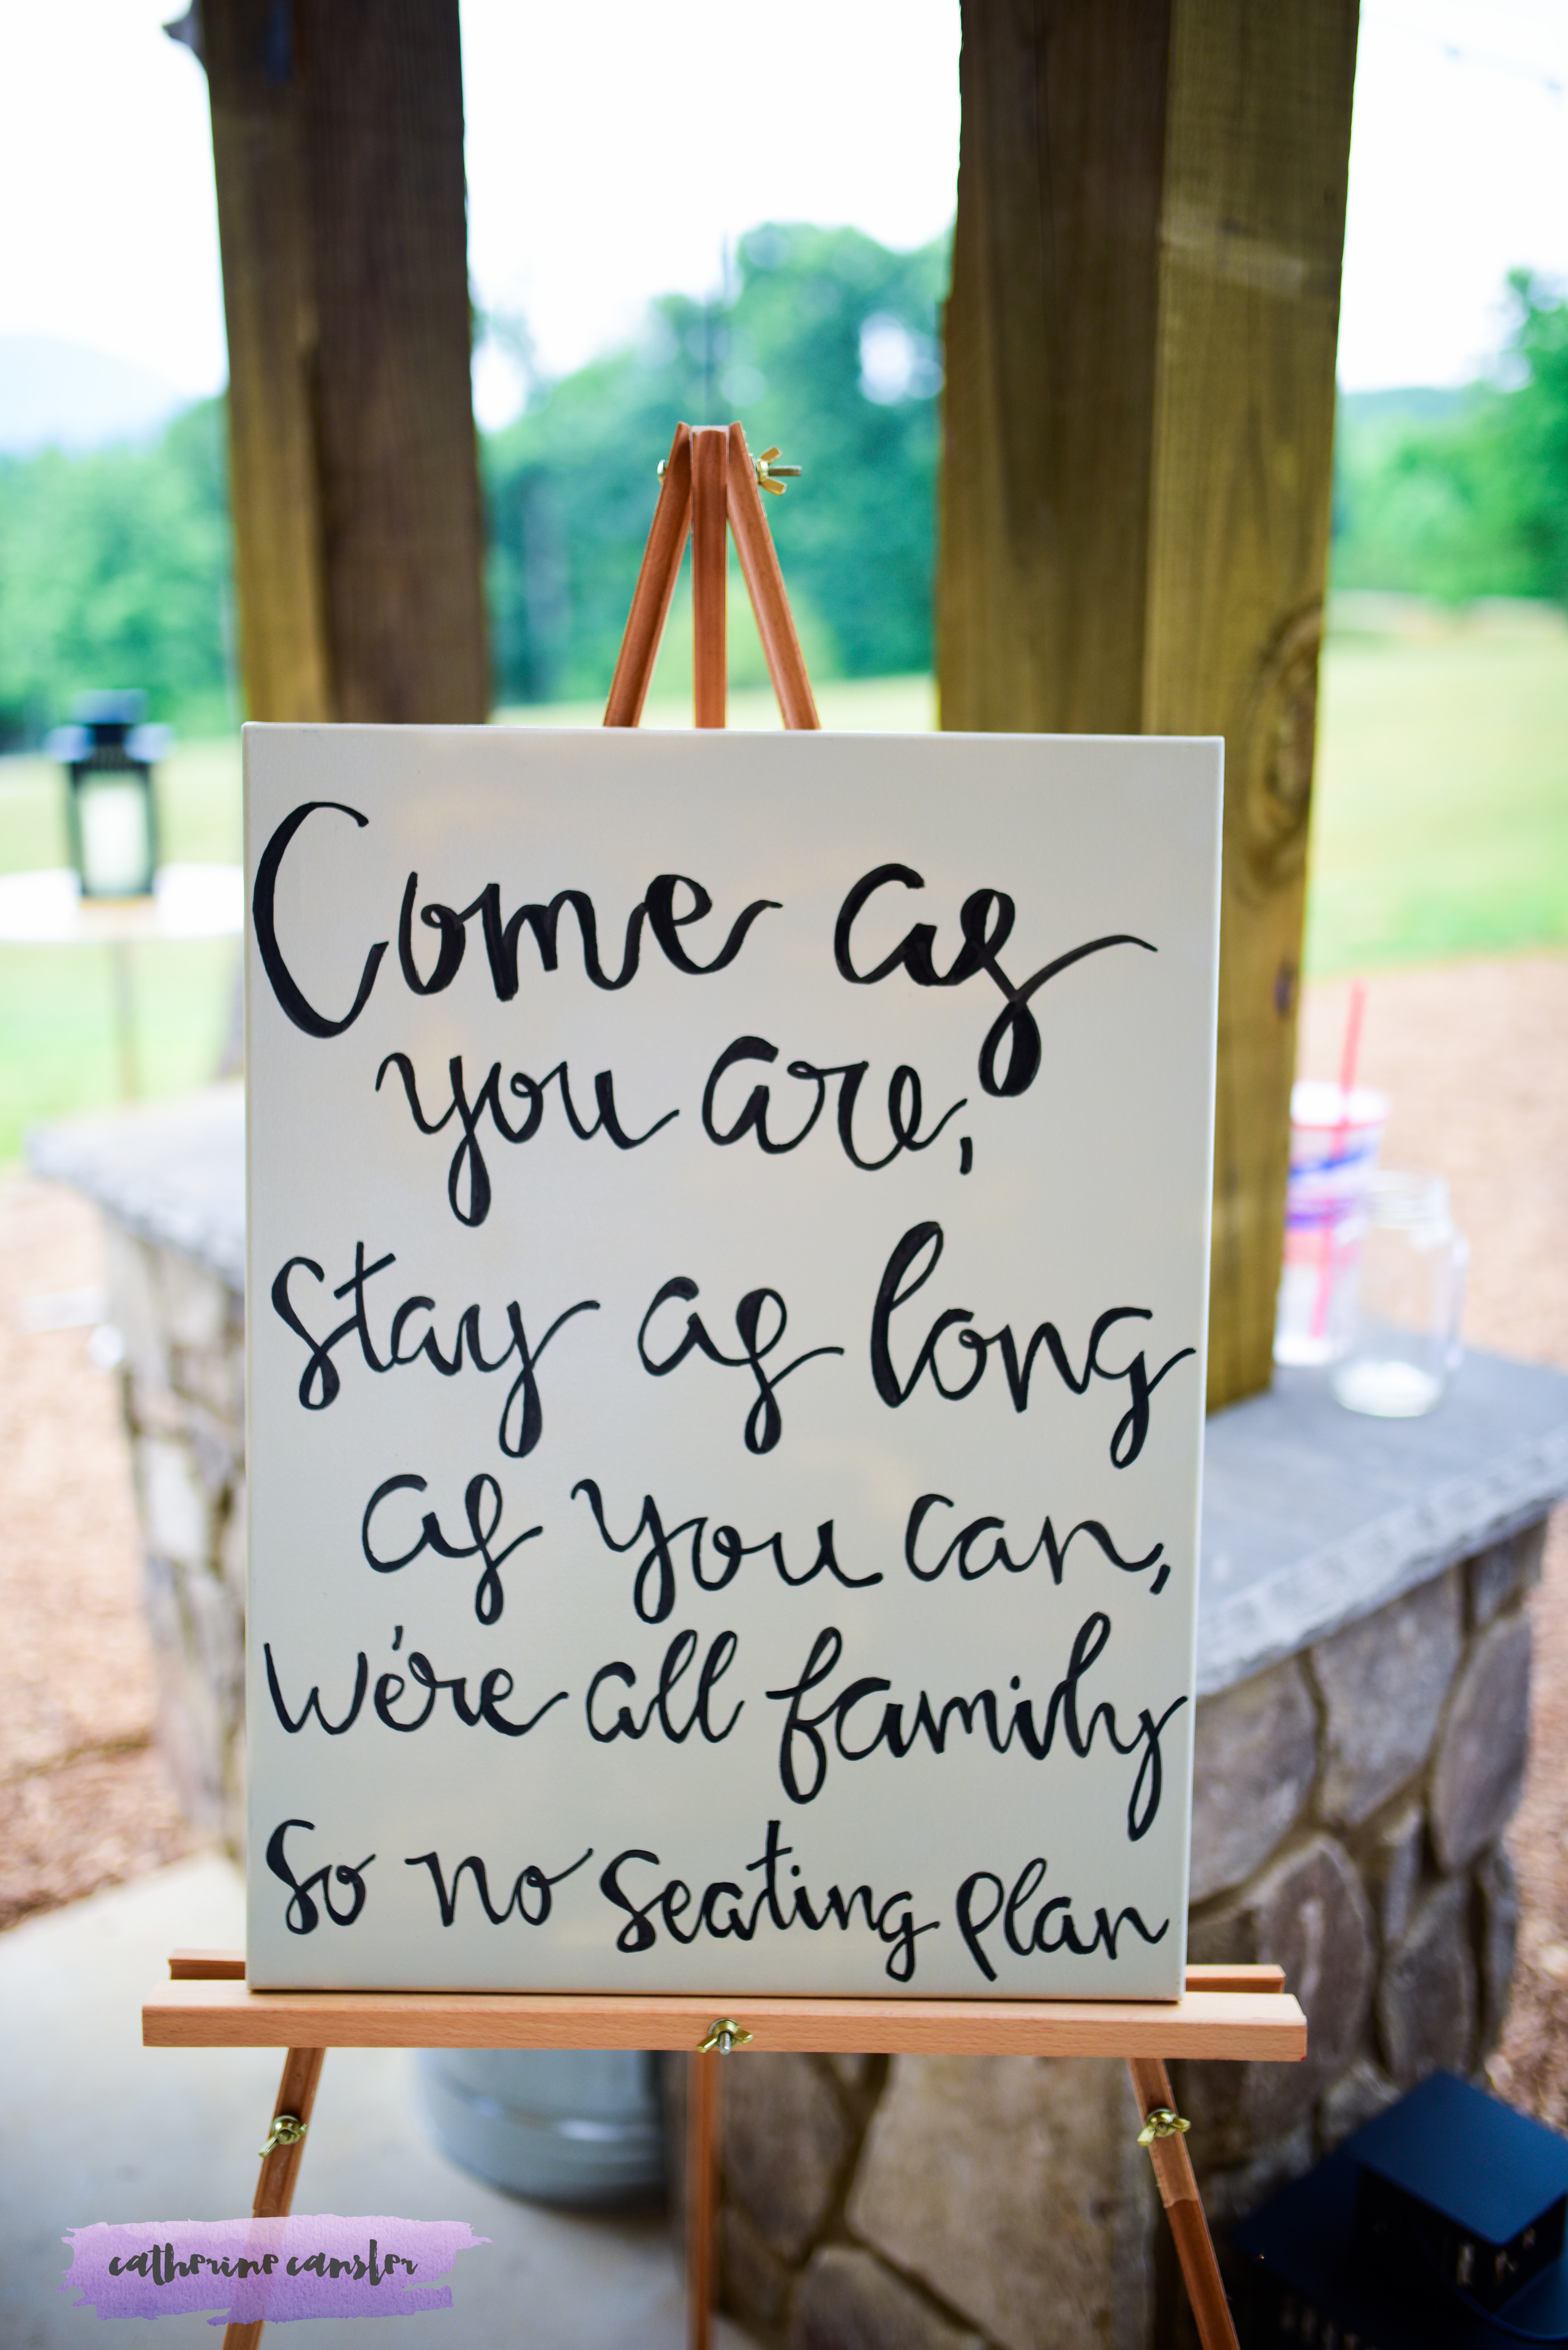 Come as
you are,
Stay as long
as you can,
We're all family
So no seating plan
catherine cansler